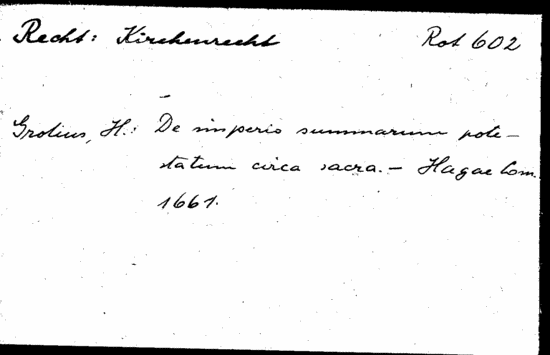 Recht: Kirchenrecht Rot 602
Grotius, H.: De imperio summarum pote-
statum circa sacra. - Hagae Com.
1661.